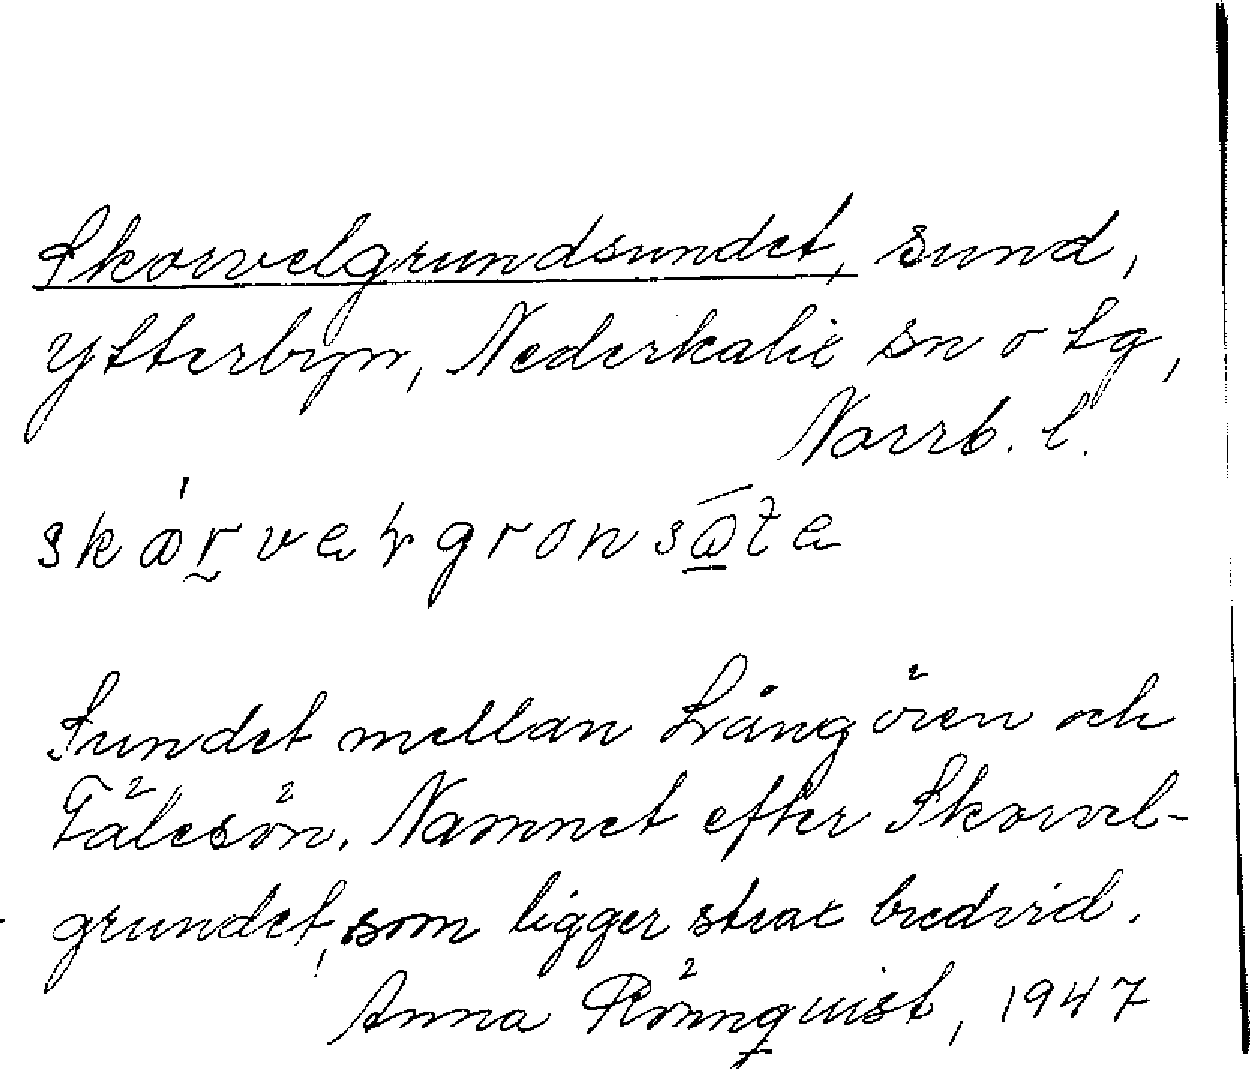 Skorvelgrundsundet, sund,
Ytterbyn, Nederkalix sn o tg,
Norrb. l.
Sundet mellan Långören och
Tälesön. Namnet efter Skorvel-
grundet, som ligger strax bredvid.
Anna Rönnquist, 1947